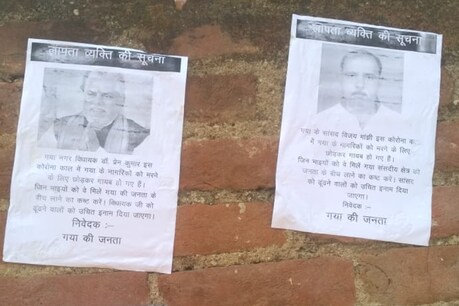 लापता व्यक्ति की सूचना
गया नगर विधायक डॉ. प्रेम कुमार इस
कोरोना काल में गया के नागरिकों को मरने
के लिए छोड़कर गायब हो गए है।
जिन भाइयों को वे मिलें गया की जनता के
बीच लाने का कष्ट करें। विधायक जी को
ढूंढने वालों को उचित इनाम दिया जाएगा।
निवेदक :-
गया की जनता
लापता व्यक्ति की सूचना
गया के सांसद विजय मांझी इस कोरोना का
में गया के नागरिकों को मरने के लिए
छोड़कर गायब हो गए है।
जिन भाइयों को वे मिलें गया संसदीय क्षेत्र की
जनता के बीच लाने का कष्ट करें। सांसद
को ढूंढने वालों को उचित इनाम दिया
जाएगा।
निवेदक :-
गया की जनता